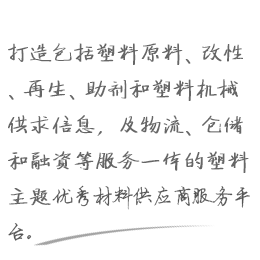 打造包括塑料原料、改性
、再生、助剂和塑料机械
供求信息，及物流、仓储
和融資等服务一体的塑料
主题优秀材料供应商服务平
台。